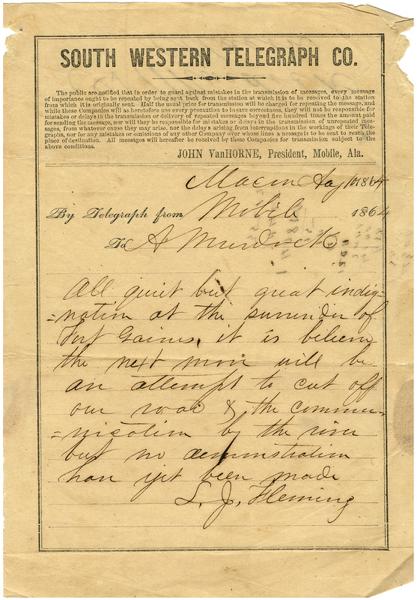 SOUTH WESTERN TELEGRAPH CO.
The public are notified that in order to guard against mistakes in the transmission of messages, every message
of importance ought to be repeated by being sent back from the station at which it is to be received to the station
from which it is originally sent. Half the usual price for transmission will be charged for repeating the message, and
while these Companies will as heretofore use every precaution to insure correctness, they will not be responsible for
mistakes or delays in the transmission or delivery of repeated messages beyond five hundred times the amount paid
for sending the message, nor will they be responsible for mistakes or delays in the transmission of unrepeated mes-
sages, from whatever cause they may arise, nor the delays arising from interruptions in the workings of their Tele-
graphs, nor for any mistakes or omissions of any other Company over whose lines a message is to be sent to reach the
place of destination. All messages will hereafter be received by these Companies for transmission subject to the
above conditions.
JOHN VanHORNE, President, Mobile, Ala.
Macon Aug 1864
By Telegraph from Mobile 1864
To A Murdock
All quiet but great indig-
=nation at the surrender of
Fort Gaines it is believed
the next move will be
an attempt to cut off
our road & the commu-
=nication by the river
but no demonstration
has yet been made
L. J. Fleming